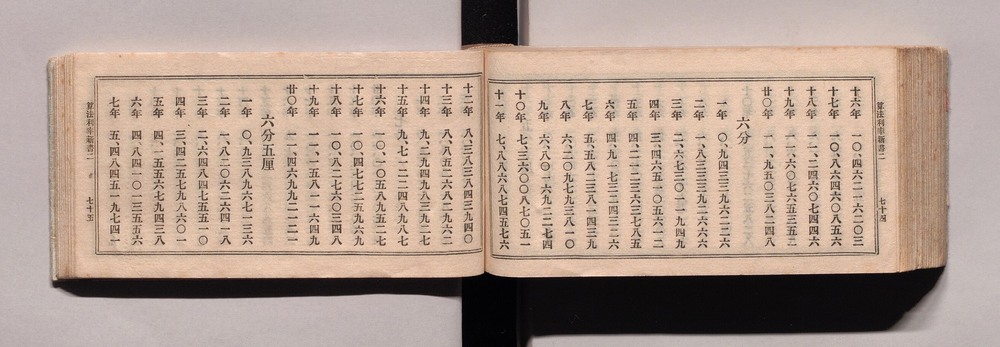 算法利率新書二 七十四
十六年 一〇、四六二一六二〇三
十七年 一〇、八六四六〇八五六
十八年 一一、二四六〇七四四六
十九年 一一、六〇七六五三五二
廿〇年 一一、九五〇三八二四八
六分
一年 〇、九四三三九六二二六
二年 一、八三三三九二六六六
三年 二、六七三〇一一九四九
四年 三、四六五一〇五六一二
五年 四、二一二三六三七八五
六年 四、九一七三二四三二六
七年 五、五八二三八一四三九
八年 六、二〇九七九三八一〇
九年 六、八〇一六九二二七四
十〇年 七、三六〇〇八七〇五一
十一年 七、八八六八七四五七六
十二年 八、三八三八四三九四〇
十三年 八、八五二六八二九六二
十四年 九、二九四九八三九二七
十五年 九、七一二二四八九八七
十六年 一〇、一〇五八九五二七
十七年 一〇、四七七二五九六九
十八年 一〇、八二七六〇三四八
十九年 一一、一五八一一六四九
廿〇年 一一、四六九九二一二一
六分五厘
一年 〇、九三八九六七一三六
二年 一、八二〇六二六四一八
三年 二、六四八四七五五一〇
四年 三、四二五七九八六〇一
五年 四、一五五六七九四三八
六年 四、八四一〇一三五五六
七年 五、四八四五一九七四一
算法利率新書二 七十五